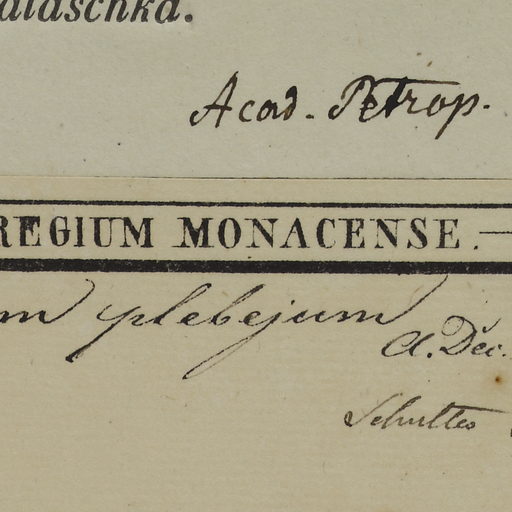 alaschka.
Acad. Petrop.
REGIUM MONACENSE.
m plebejum
A. Dec.
Schultes